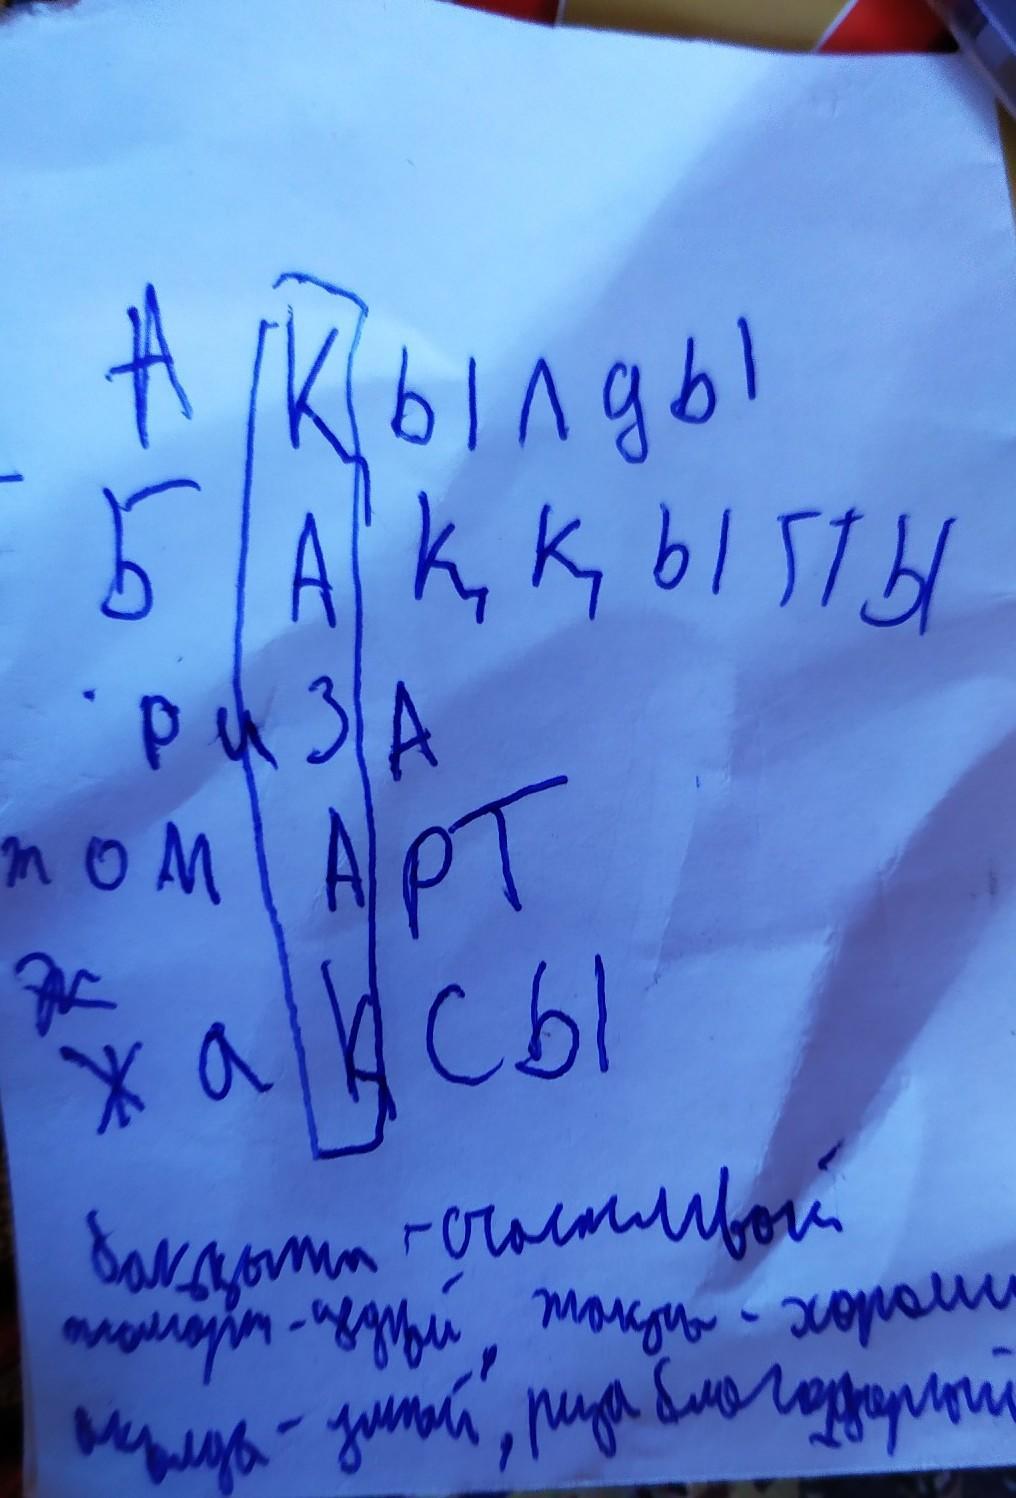 А Қ ы л д ы
Б А қ қ ы т т ы
р и З А
т о м А Р Т
Ж
Ж а қ с ы
баққытты - счастливый
томарт - щедрый, жақсы - хорош
ақылды - умный, риза благодарный